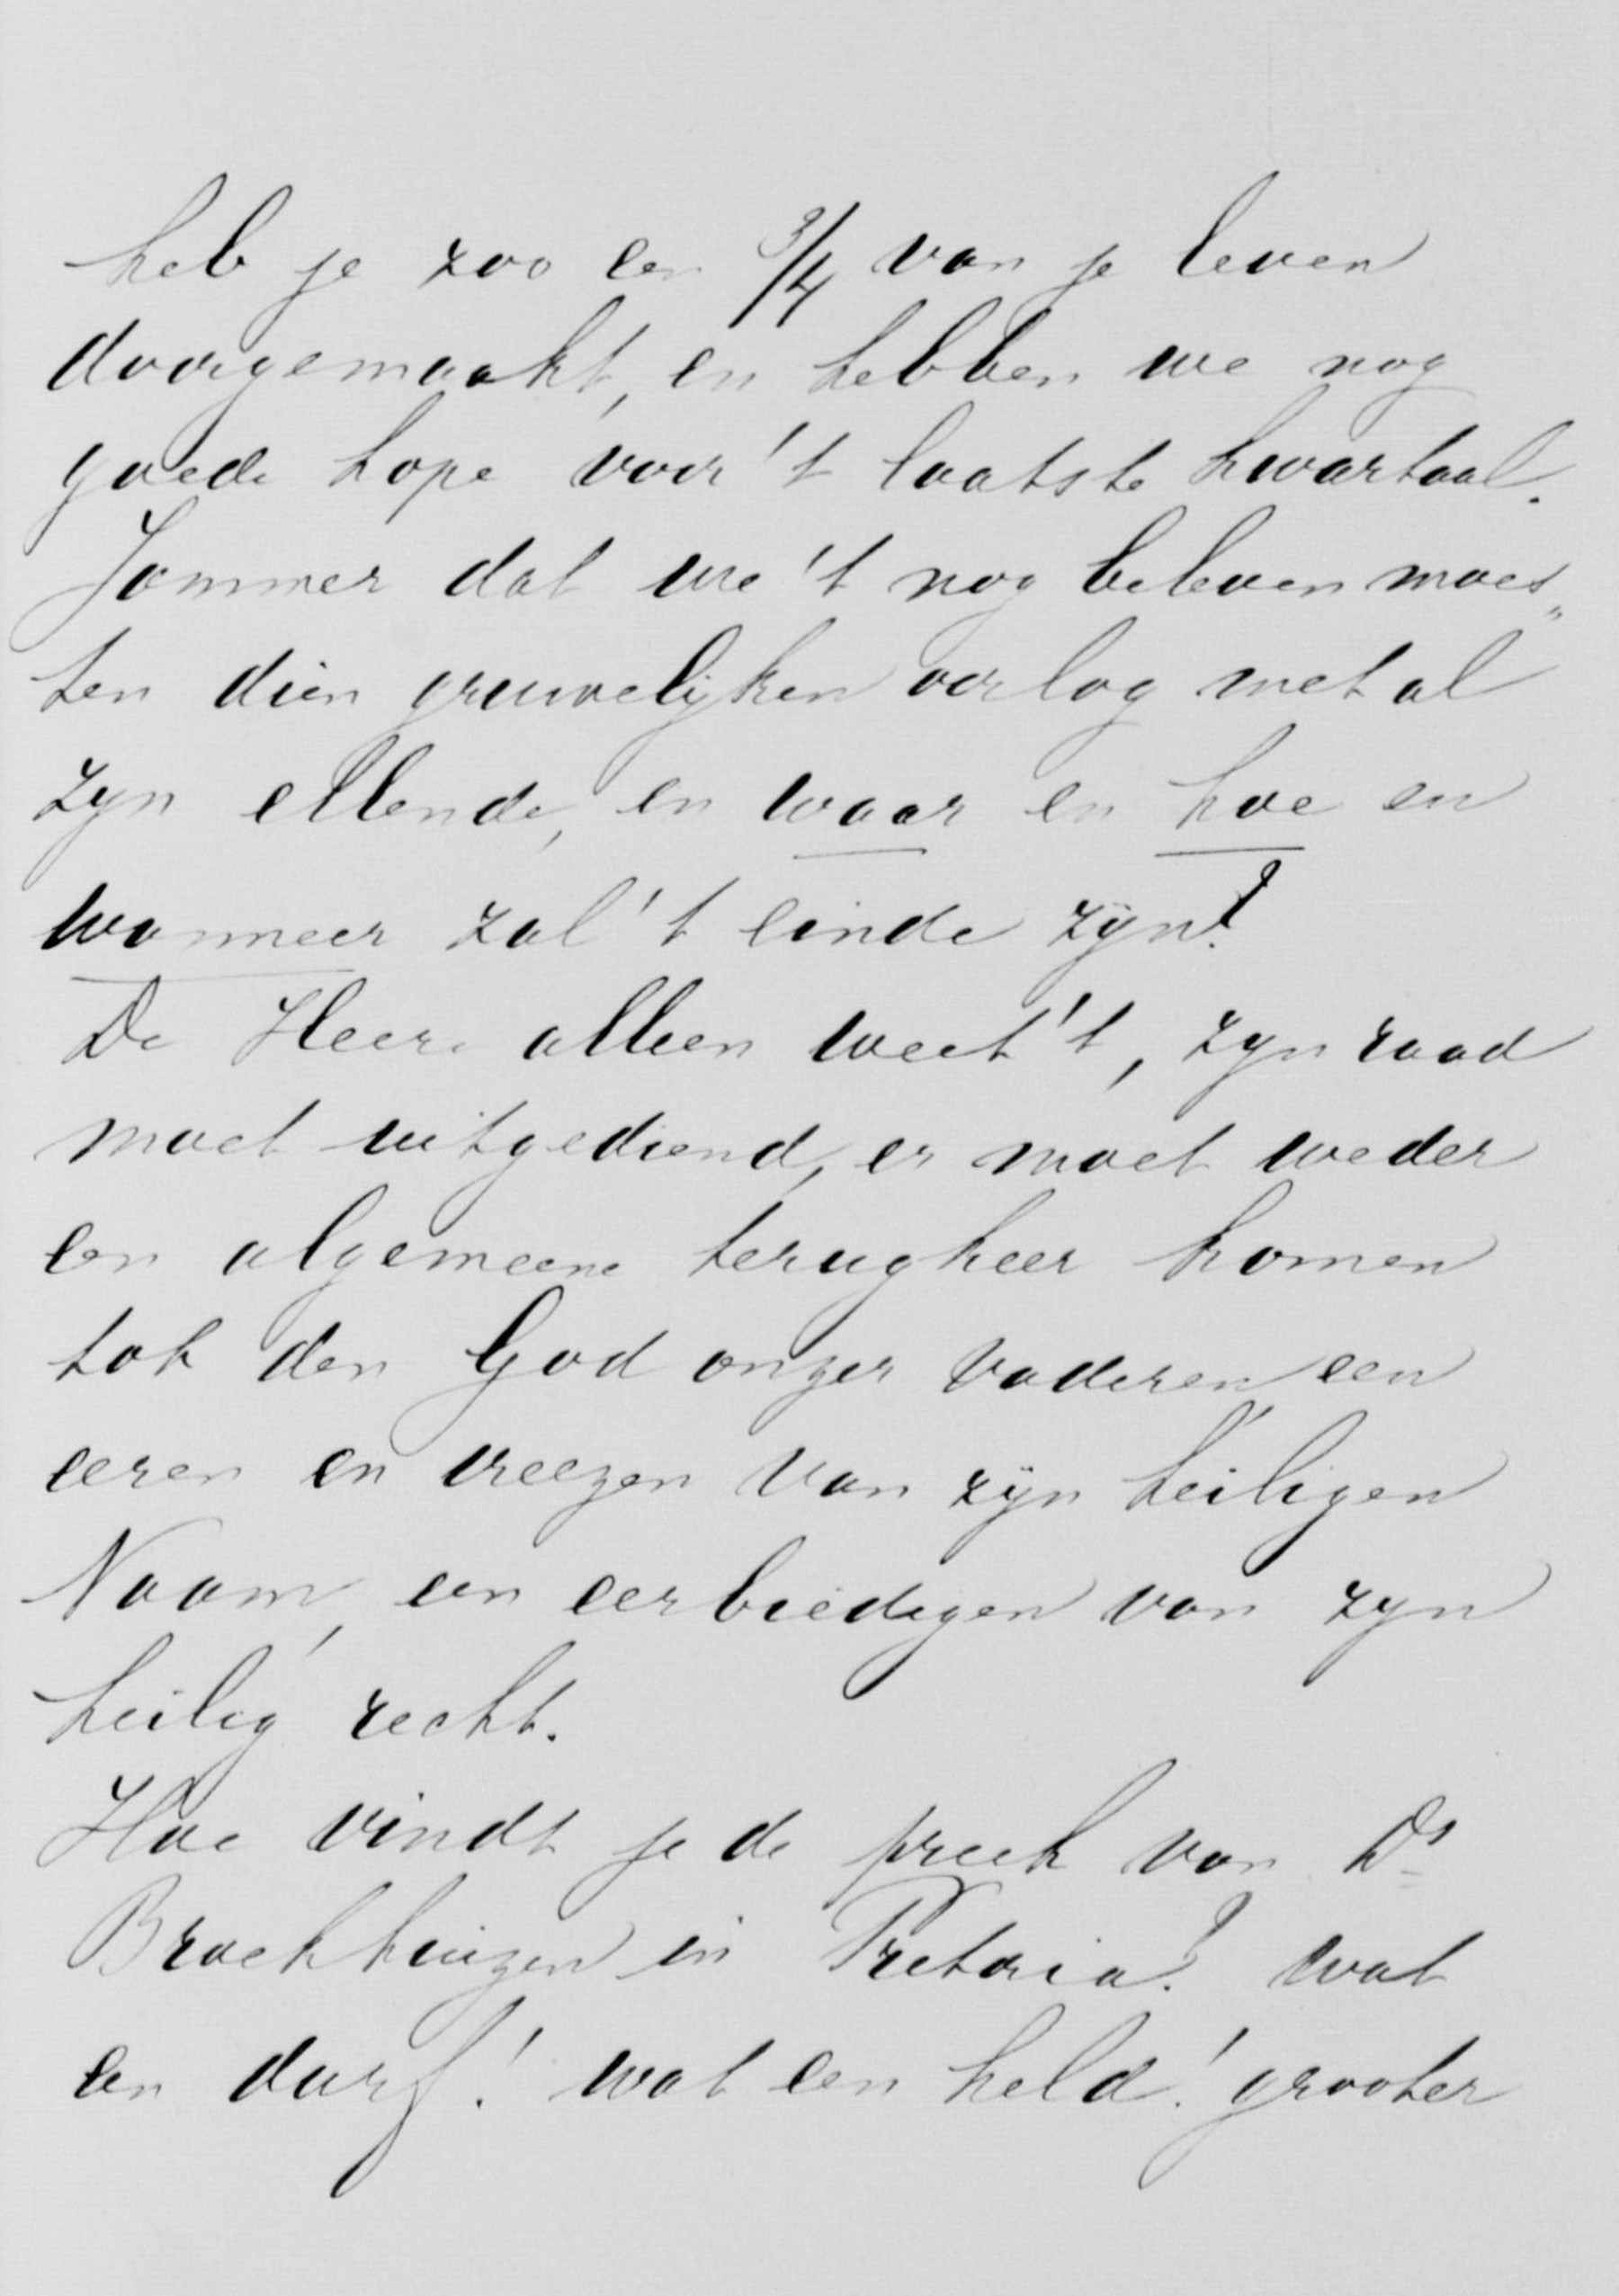 heb je zoo een 3/4 van je leven
doorgemaakt, en hebben we nog
goede hope voor 't laatste kwartaal.
Jammer dat we 't nog beleven moes„
ten dien gruwelijken oorlog met al
zyn ellende, en waar en hoe en
wanneer zal 't einde zijn?
De Heere alleen weet 't, zyn raad
moet uitgediend, er moet weder
een algemeene terugkeer komen
tot den God onzer vaderen, een
eeren en vreezen van zijn heiligen
Naam, een eerbiedigen van zyn
heilig recht.
Hoe vindt je de preek van Ds
Broekhuizen in Pretoria? wat
een durf! wat een held! grooter